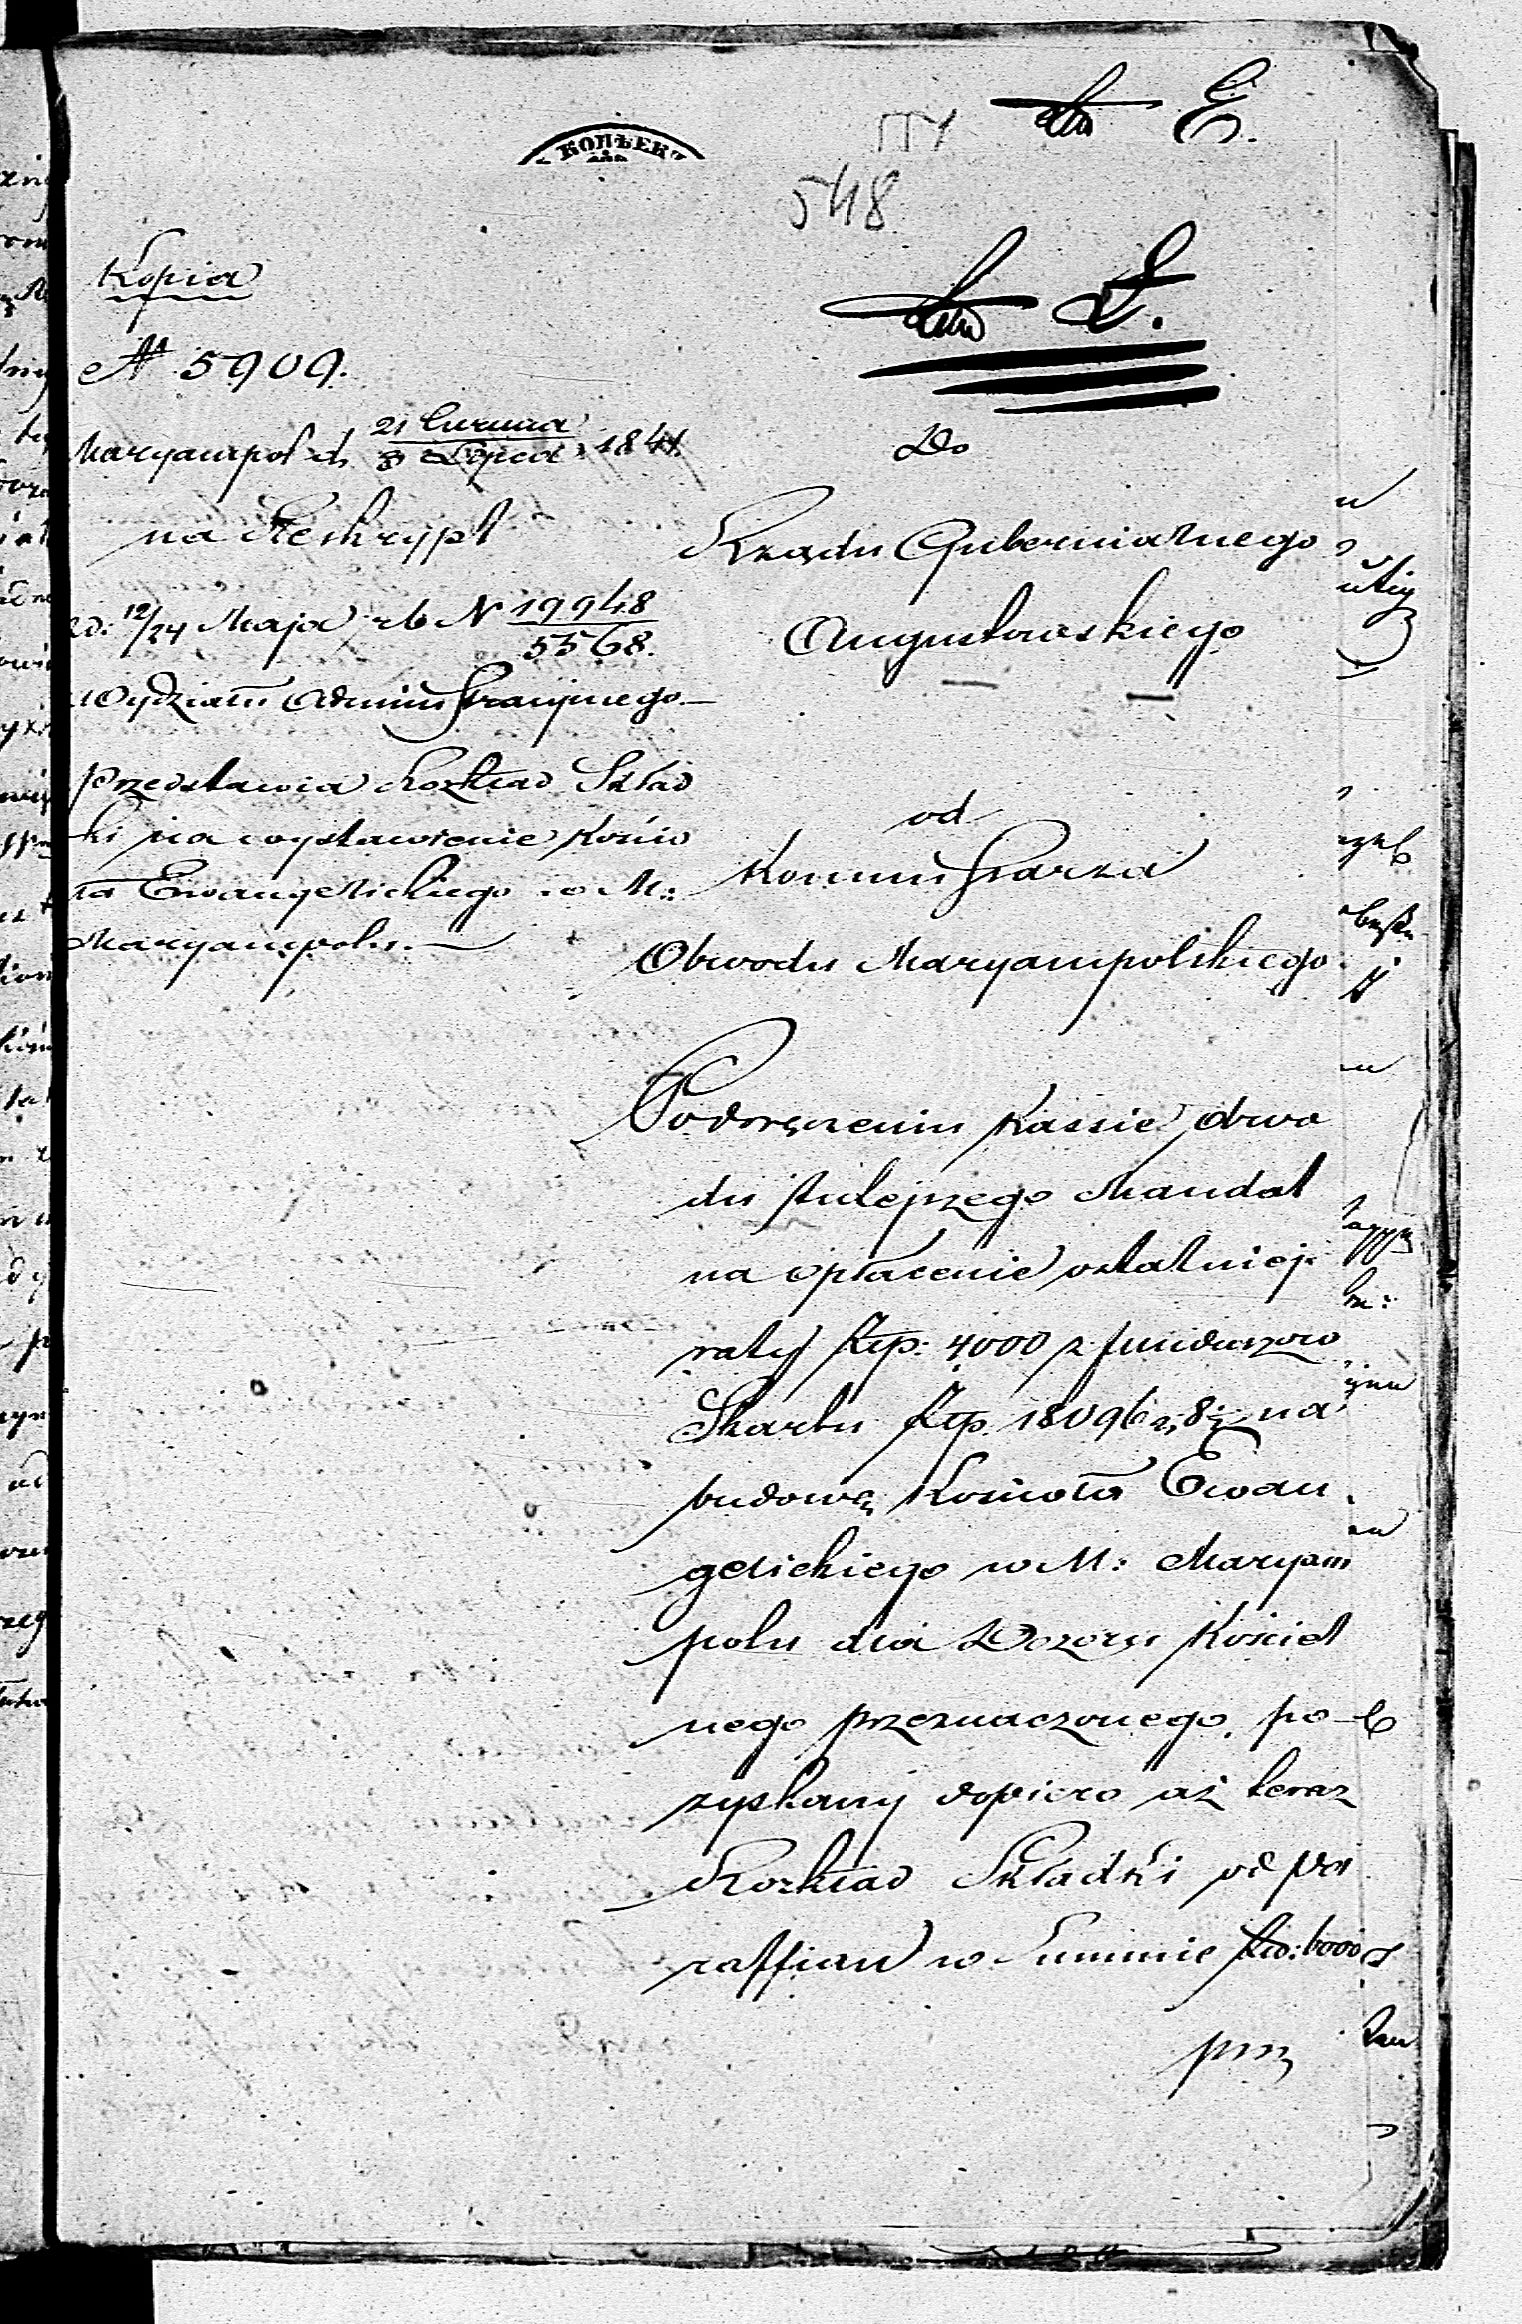 КОПѢЕК
Lit. E.
548
Lit. D.
Kopia
№ 5909.
Maryampol d. 21 Czerwca / 3 Lipca 1841.
na Reskrypt
z d. 12/24 Maja r b N 19948/5568.
Wydziału Administracyjnego
Przedstawia Rozkład Skład
ki na wystawienie Kościo
ła Ewangelickiego w M:
Maryampolu.
Do
Rządu Gubernialnego
Augustowskiego
od
Kommissarza
Obwodu Maryampolskiego
Po doręczeniu Kassie obwo
du tutejszego Mandat
na opłacenie ostatniej
raty Złp: 4000 z funduszow
Skarbu Złp. 18096 na
budowę Kościoła Ewan
gelickiego w M: Maryam
polu dla Dozoru Kościel
nego przeznaczonego, po
zyskany dopiero aż teraz
Rozkład Składki od pa
raffian w Summie 6000
prz